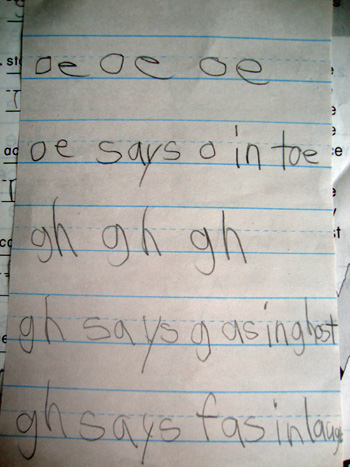 oe oe oe
oe says o in toe
gh gh gh
gh says g as in ghost
gh says f as in